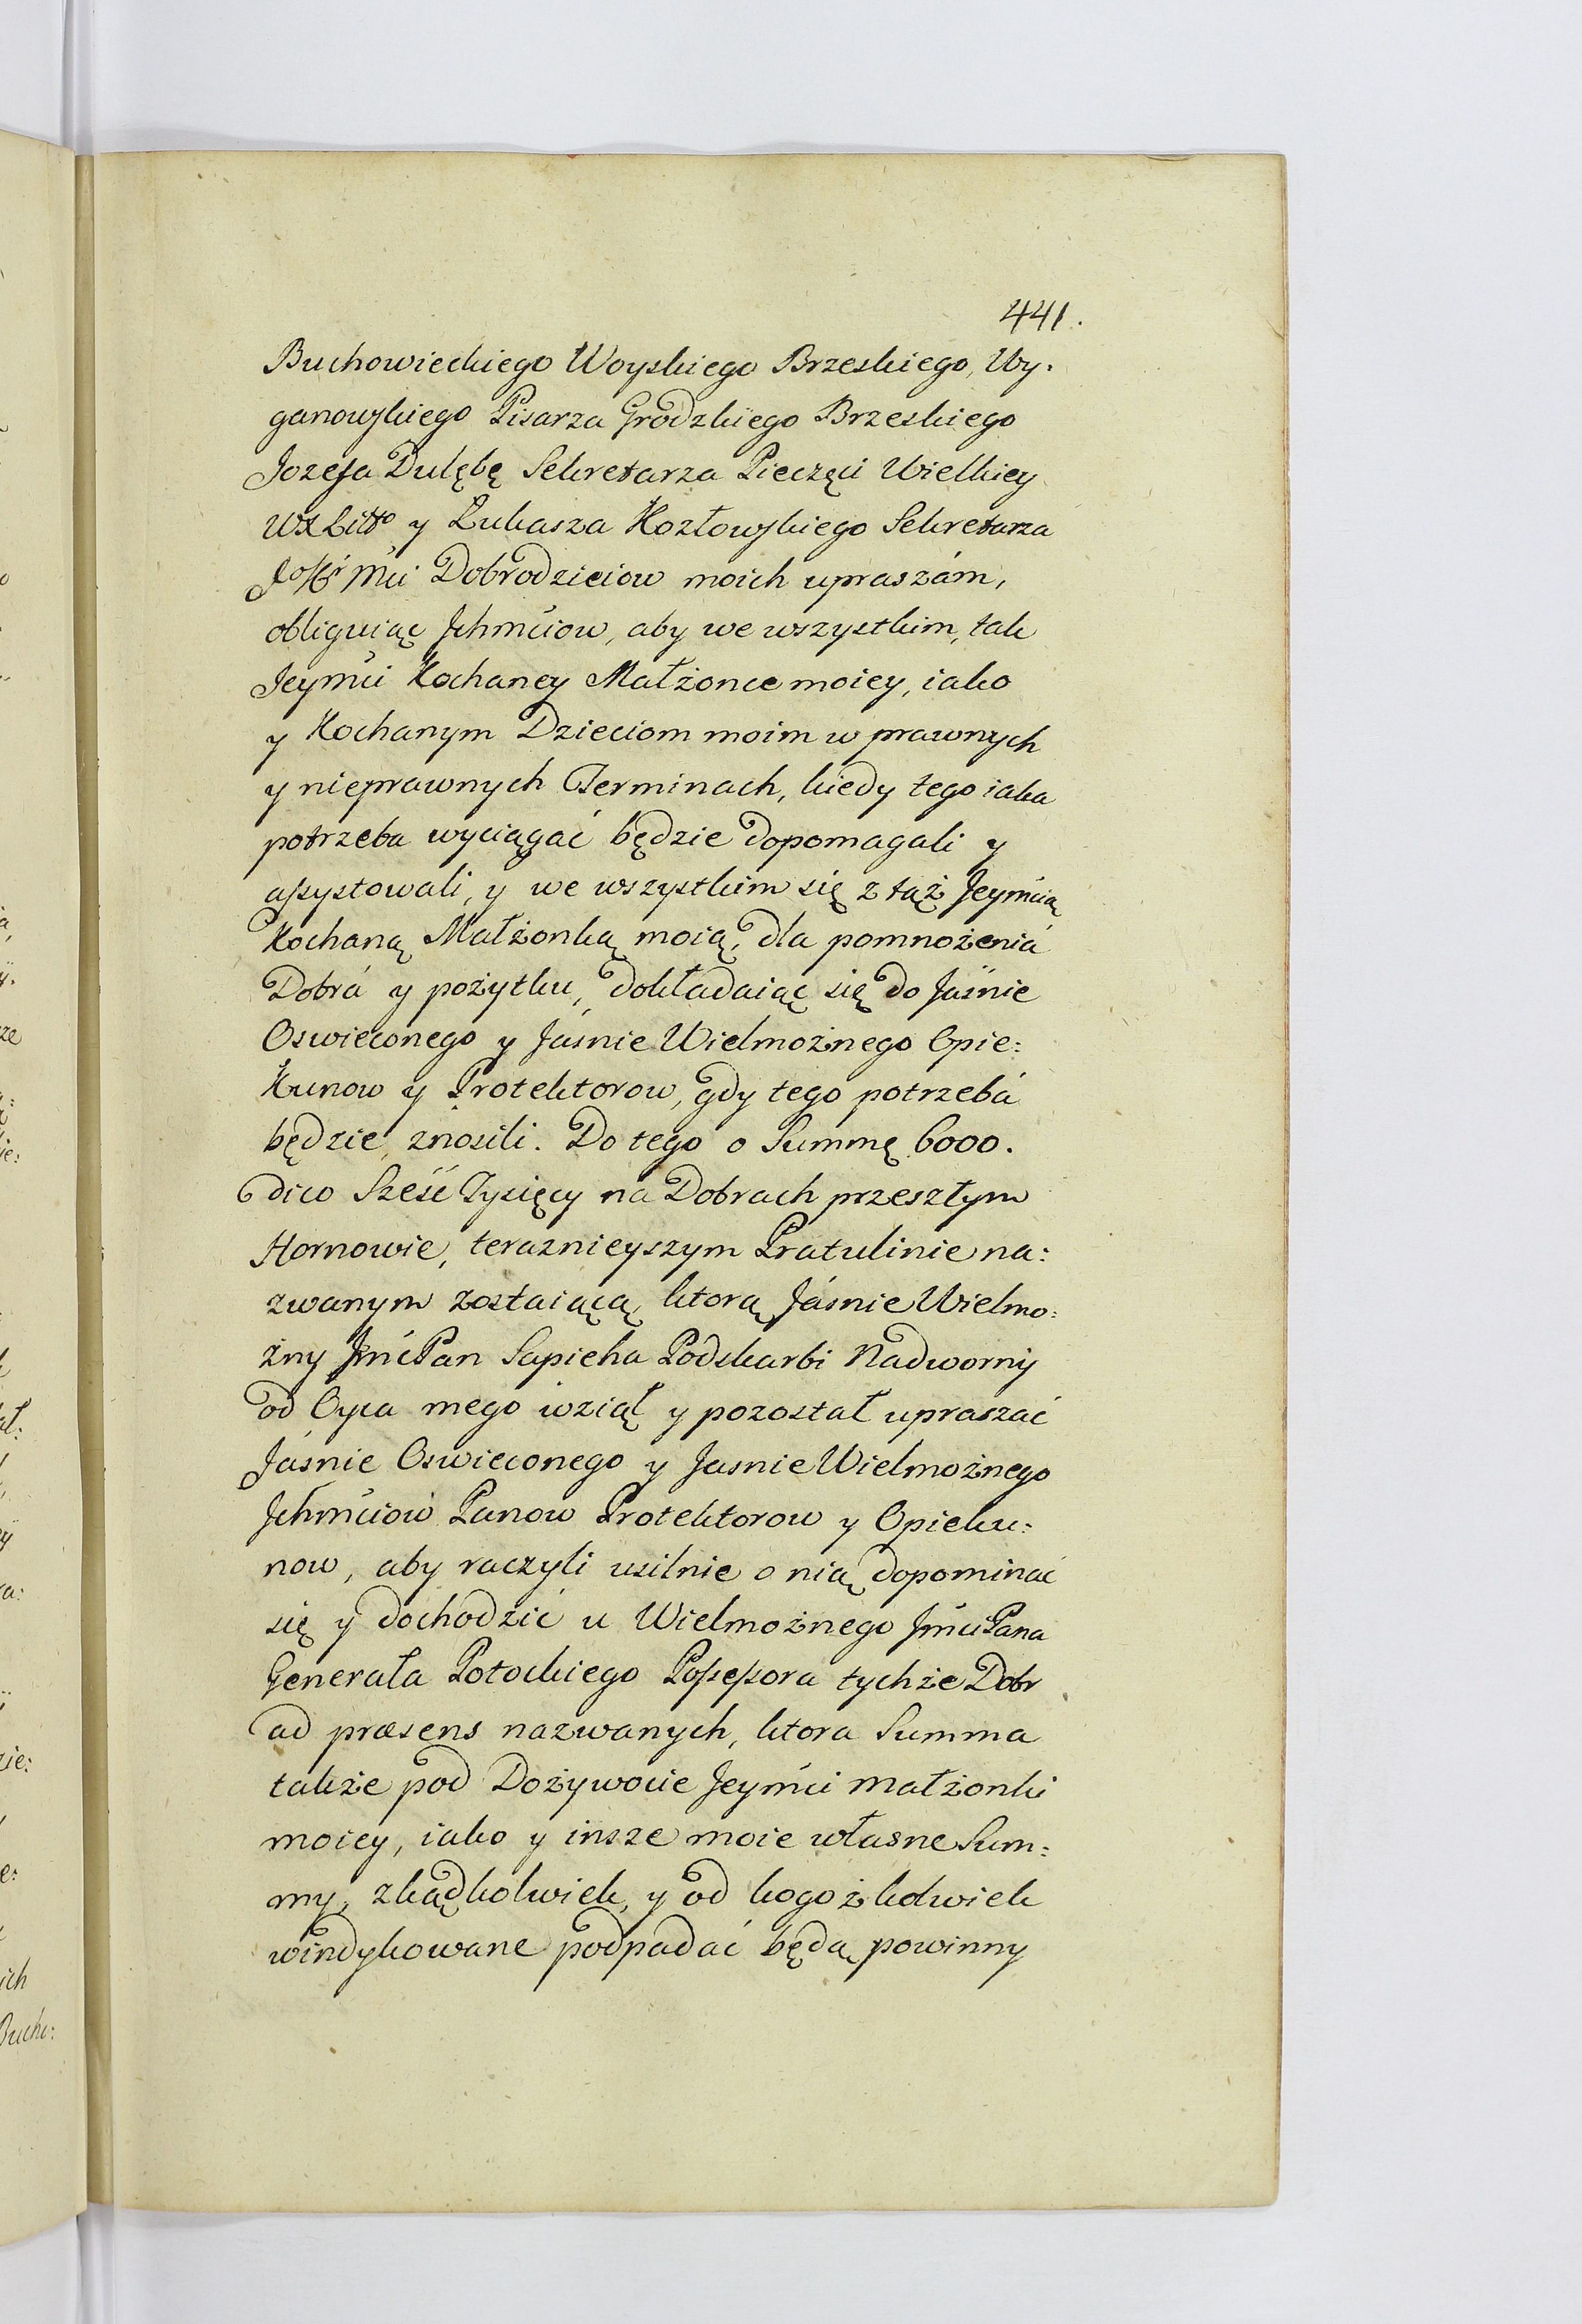 441.
Buchowieckiego Woyskiego Brzeskiego, Wy.
ganowskiego Pisarza Grodzkiego Brzeskiego
Jozefa Dulębę Sekretarza Pieczęci Wielkiey
WXLittº y Łukasza Kozłowskiego Sekretarza
Mći Dobrodzieiow moich upraszám,
obliguiąc Jchmćiow, aby we wszystkim, tak
Jeymći Kochaney Małżonce moiey, iako
y Kochanym Dzieciom moim w prawnych
y nieprawnych Terminach, kiedy tego iaka
potrzeba wyciągać będzie dopomagali y
assystowali, y we wszystkim się z tąż Jeymćią
Kochaną Małżonką moią, dla pomnożeniá
Dobrá y pożytku, dokładaiąc się do Jaśnie
Oswieconego y Jáśnie Wielmożnego Opie:
Kunow y Protektorow, gdy tego potrzebá
będzie, znosili. Do tego o Summę 6000.
dico Sześć Tysięcy na Dobrach przeszłym
Hornowie, teraznieyszym Pratulinie na:
zwanym zostaiącą, ktorą Jáśnie Wielmo:
żny Jmć Pan Sapieha Podskarbi Nadworny
od Oyca mego wziął y pozostał upraszać
Jáśnie Oswieconego y Jasnie Wielmożnego
Jchmćiow Panow Protektorow y Opieku:
now, aby raczyli usilnie o nią dopominać
się y dochodzić u Wielmożnego Jmći Pana
Generała Potockiego Possessora tychże Dobr
ad præsens nazwanych, ktora Summa
także pod Dożywocie Jeymći Małżonki
moiey, iako y insze moie własne Sum:
my, zkądkolwiek, y od kogożkolwiek
windykowane podpadać będą powinny
ich
Bucho: